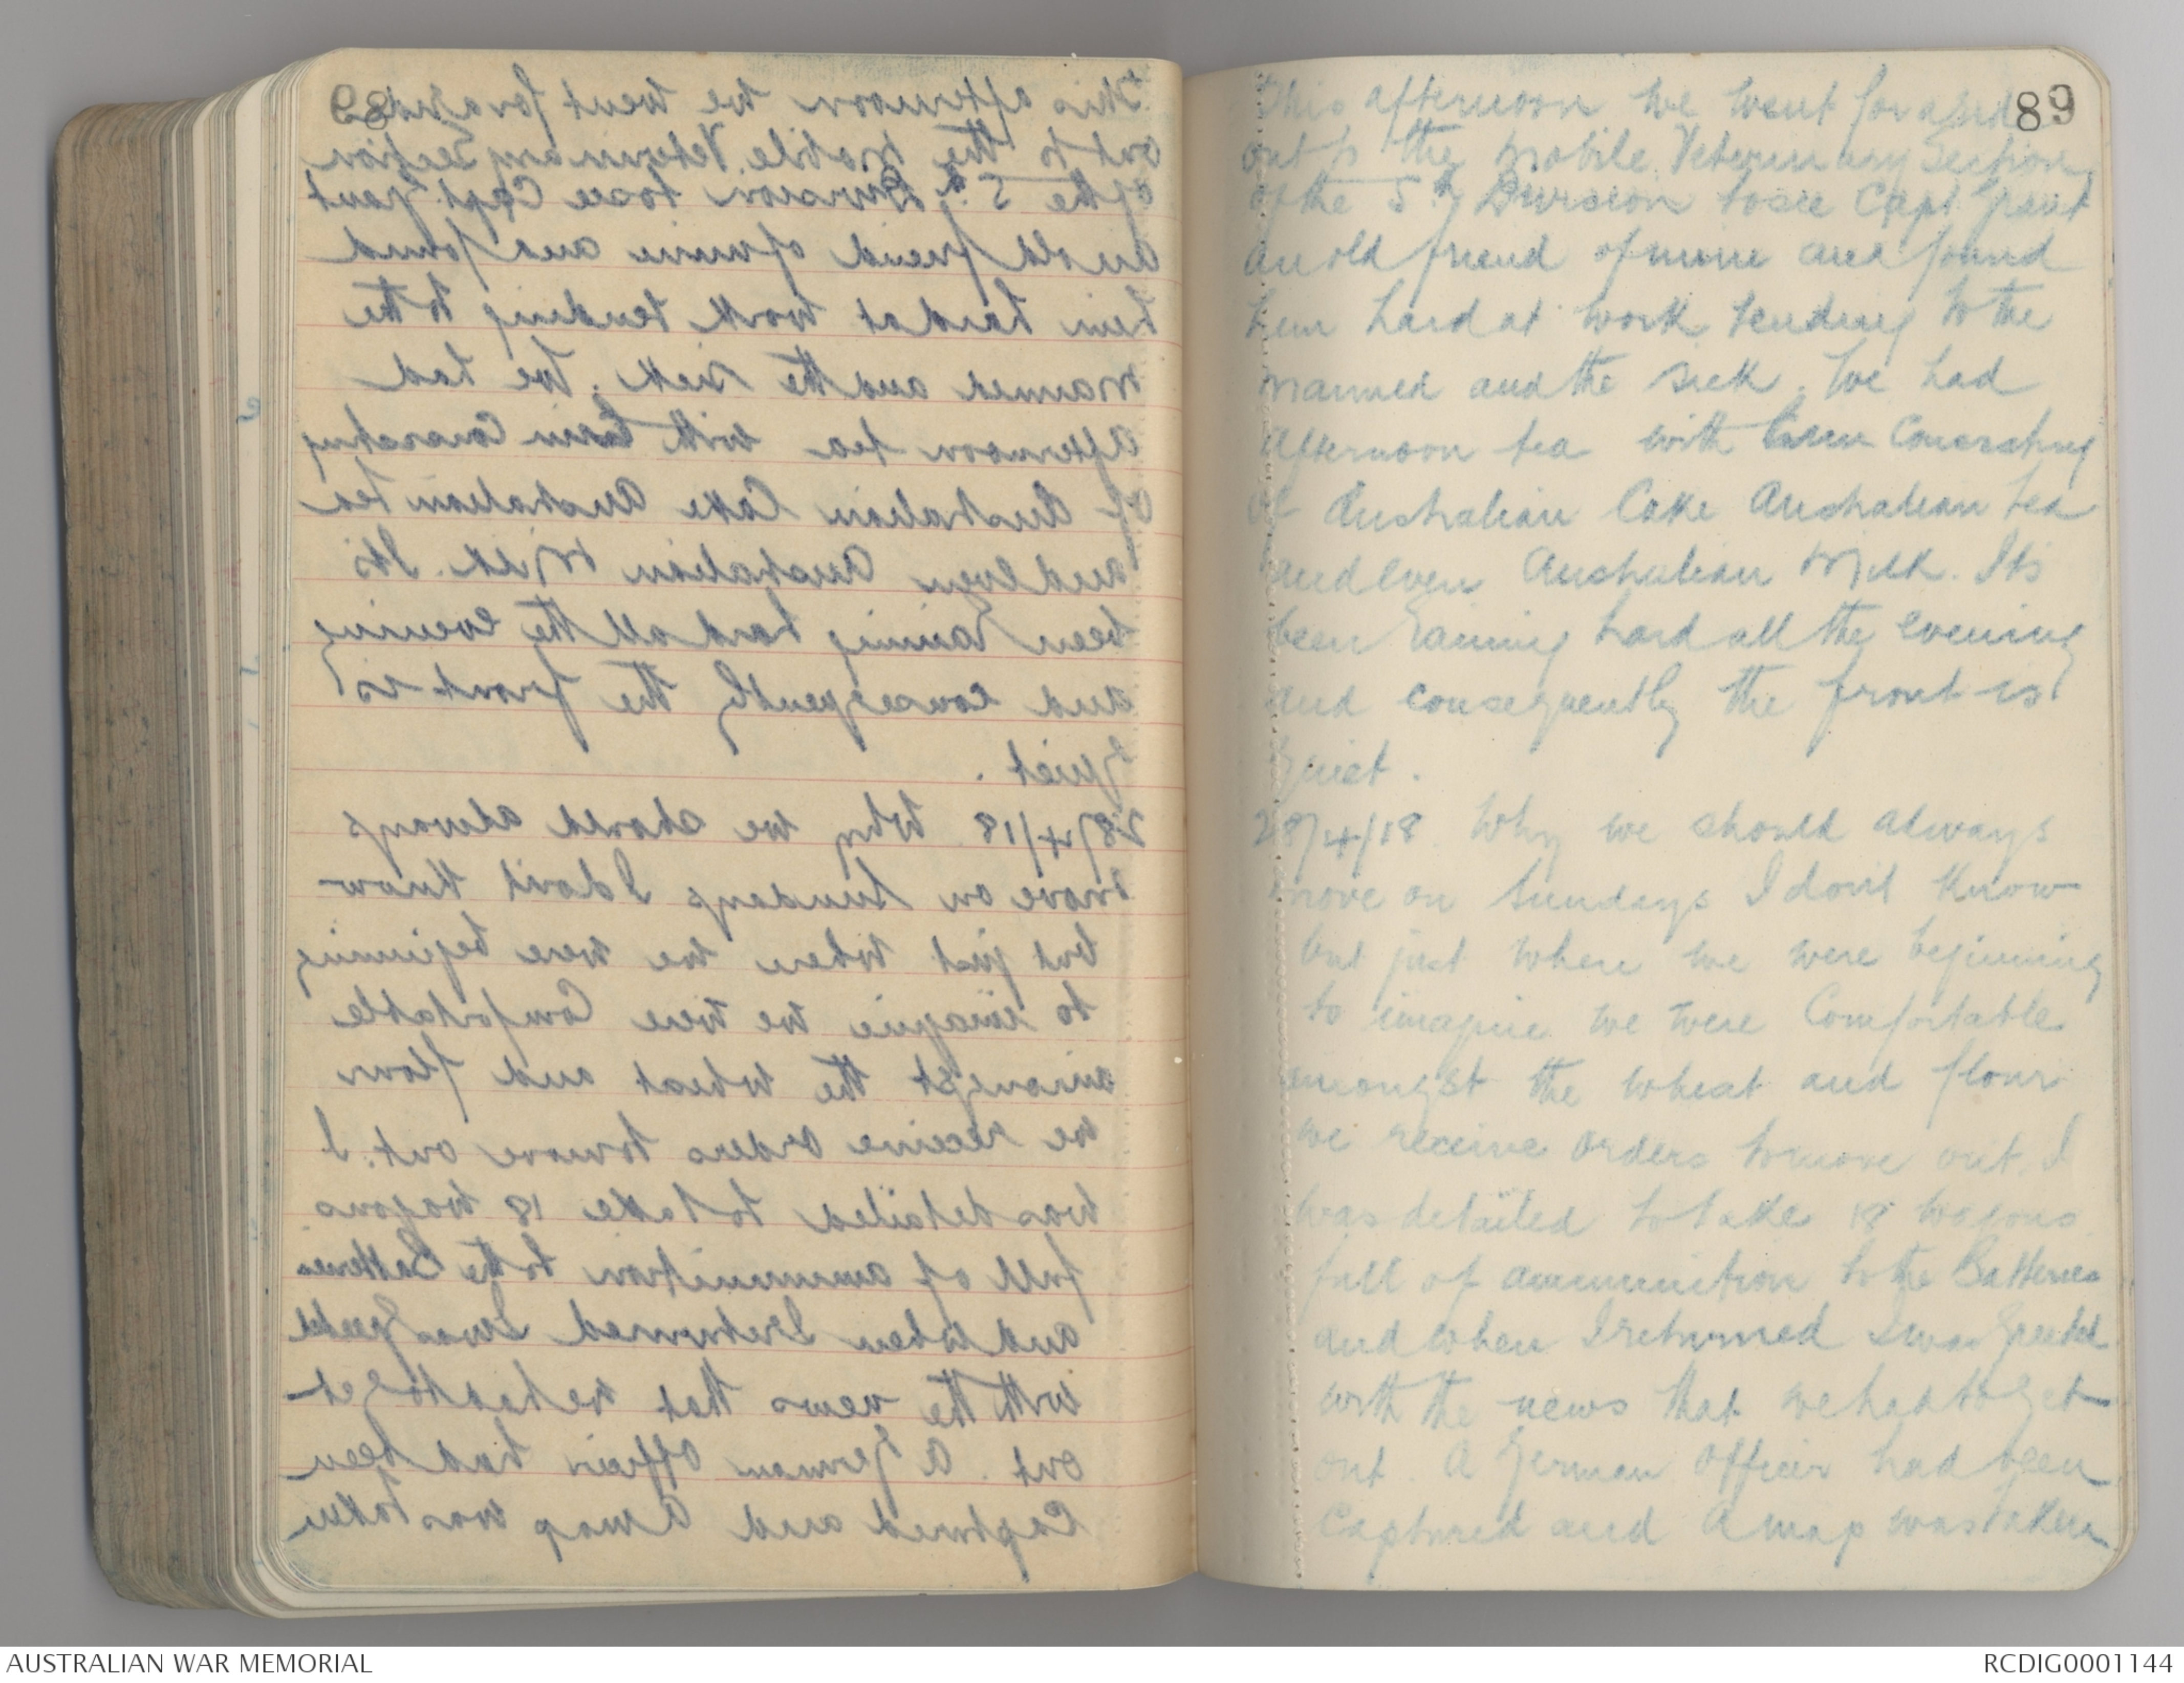 89
This afternoon we went for a ride
out to the Mobile Veterinary Section
of the 5th Division to see Capt Grant
an old friend of mine and found
him hard at work tending to the
maimed and the sick. We had
afternoon tea with him consisting
of Australian Cake Australian tea
and even Australian Milk. Its
been raining hard all the evening
and consequently the front is
quiet.
28/4/18. Why we should always
move on Sundays I don't know
but just when we were beginning
to imagine we were Comfortable
amongst the wheat and flour
we receive orders to move out. I
was detailed to take 18 wagons
full of ammunition to the Batteries
and when I returned I was greeted
with the news that we had to get
out. A German Officer had been
Captured and a map was taken
AUSTRALIAN WAR MEMORIAL
RCDIG0001144